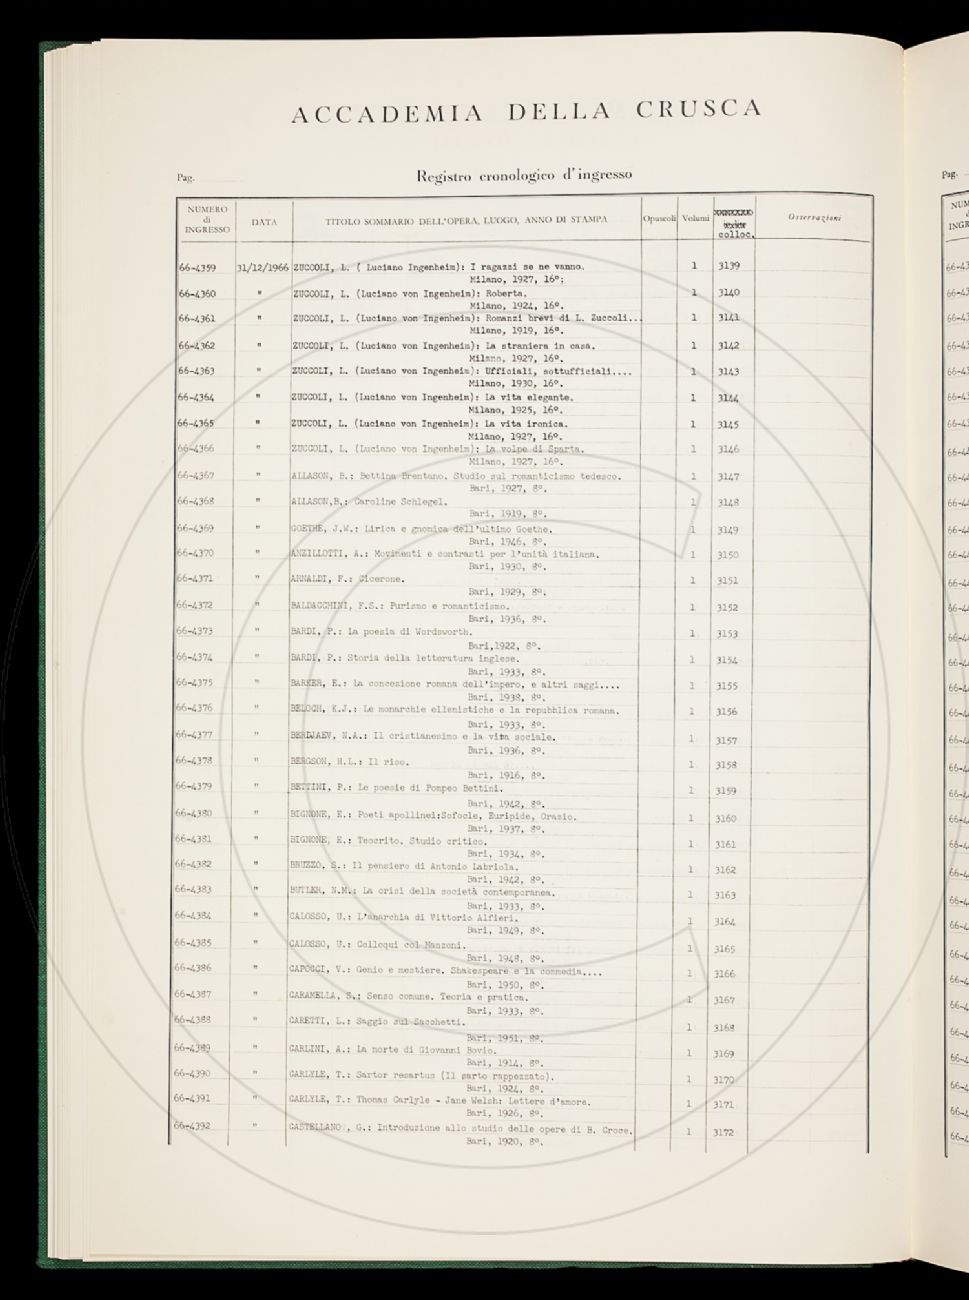 ACCADEMIA DELLA CRUSCA
Pag. Registro cronologico d'ingresso
NUMERO di INGRESSO DATA TITOLO SOMMARIO DELL'OPERA, LUOGO, ANNO DI STAMPA Opuscoli Volumi colloc. Osservazioni
66-4359 31/12/1966 ZUCCOLI, L. ( Luciano Ingenheim): I ragazzi se ne vanno. 1 3139
Milano, 1927, 16°;
66-4360 " ZUCCOLI, L. (Luciano von Ingenheim): Roberta. 1 3140
Milano, 1924, 16°.
66-4361 " ZUCCOLI, L. (Luciano von Ingenheim): Romanzi brevi di L. Zuccoli... 1 3141
Milano, 1919, 16°.
66-4362 " ZUCCOLI, L. (Luciano von Ingenheim): La straniera in casa. 1 3142
Milano, 1927, 16°.
66-4363 " ZUCCOLI, L. (Luciano von Ingenheim): Ufficiali, sottufficiali.... 1 3143
Milano, 1930, 16°.
66-4364 " ZUCCOLI, L. (Luciano von Ingenheim): La vita elegante. 1 3144
Milano, 1925, 16°.
66-4365 " ZUCCOLI, L. (Luciano von Ingenheim): La vita ironica. 1 3145
Milano, 1927, 16°.
66-4366 " ZUCCOLI, L. (Luciano von Ingenheim): La volpe di Sparta. 1 3146
Milano, 1927, 16°.
66-4367 " ALLASON, B.: Bettina Brentano. Studio sul romanticismo tedesco. 1 3147
Bari, 1927, 8°.
66-4368 " ALLASON,B.: Caroline Schlegel. 1 3148
Bari, 1919, 8°.
66-4369 " GOETHE, J.W.: Lirica e gnomica dell'ultimo Goethe. 1 3149
Bari, 1946, 8°.
66-4370 " ANZILLOTTI, A.: Movimenti e contrasti per l'unità italiana. 1 3150
Bari, 1930, 8°.
66-4371 " ARNALDI, F.: Cicerone. 1 3151
Bari, 1929, 8°.
66-4372 " BALDACCHINI, F.S.: Purismo e romanticismo. 1 3152
Bari, 1936, 8°.
66-4373 " BARDI, P.: La poesia di Wordsworth. 1 3153
Bari,1922, 8°.
66-4374 " BARDI, P.: Storia della letteratura inglese. 1 3154
Bari, 1933, 8°.
66-4375 " BARKER, E.: La concezione romana dell'impero, e altri saggi.... 1 3155
Bari, 1938, 8°.
66-4376 " BELOCH, K.J.: Le monarchie ellenistiche e la repubblica romana. 1 3156
Bari, 1933, 8°.
66-4377 " BERDJAEV, N.A.: Il cristianesimo e la vita sociale. 1 3157
Bari, 1936, 8°.
66-4378 " BERGSON, H.L.: Il riso. 1 3158
Bari, 1916, 8°.
66-4379 " BETTINI, P.: Le poesie di Pompeo Bettini. 1 3159
Bari, 1942, 8°.
66-4380 " BIGNONE, E.: Poeti apollinei:Sofocle, Euripide, Orazio. 1 3160
Bari, 1937, 8°.
66-4381 " BIGNONE, E.: Teocrito. Studio critico. 1 3161
Bari, 1934, 8°.
66-4382 " BRUZZO, S.: Il pensiero di Antonio Labriola. 1 3162
Bari, 1942, 8°.
66-4383 " BUTLER, N.M.: La crisi della società contemporanea. 1 3163
Bari, 1933, 8°.
66-4384 " CALOSSO, U.: L'anarchia di Vittorio Alfieri. 1 3164
Bari, 1949, 8°.
66-4385 " CALOSSO, U.: Colloqui col Manzoni. 1 3165
Bari, 1948, 8°.
66-4386 " CAPOCCI, V.: Genio e mestiere. Shakespeare e la commedia.... 1 3166
Bari, 1950, 8°.
66-4387 " CARAMELLA, S.: Senso comune. Teoria e pratica. 1 3167
Bari, 1933, 8°.
66-4388 " CARETTI, L.: Saggio sul Sacchetti. 1 3168
Bari, 1951, 8°.
66-4389 " CARLINI, A.: La morte di Giovanni Bovio. 1 3169
Bari, 1914, 8°.
66-4390 " CARLYLE, T.: Sartor resartus (Il sarto rappezzato). 1 3170
Bari, 1924, 8°.
66-4391 " CARLYLE, T.: Thomas Carlyle - Jane Welsh: Lettere d'amore. 1 3171
Bari, 1926, 8°.
66-4392 " CASTELLANO , G.: Introduzione allo studio delle opere di B. Croce. 1 3172
Bari, 1920, 8°.